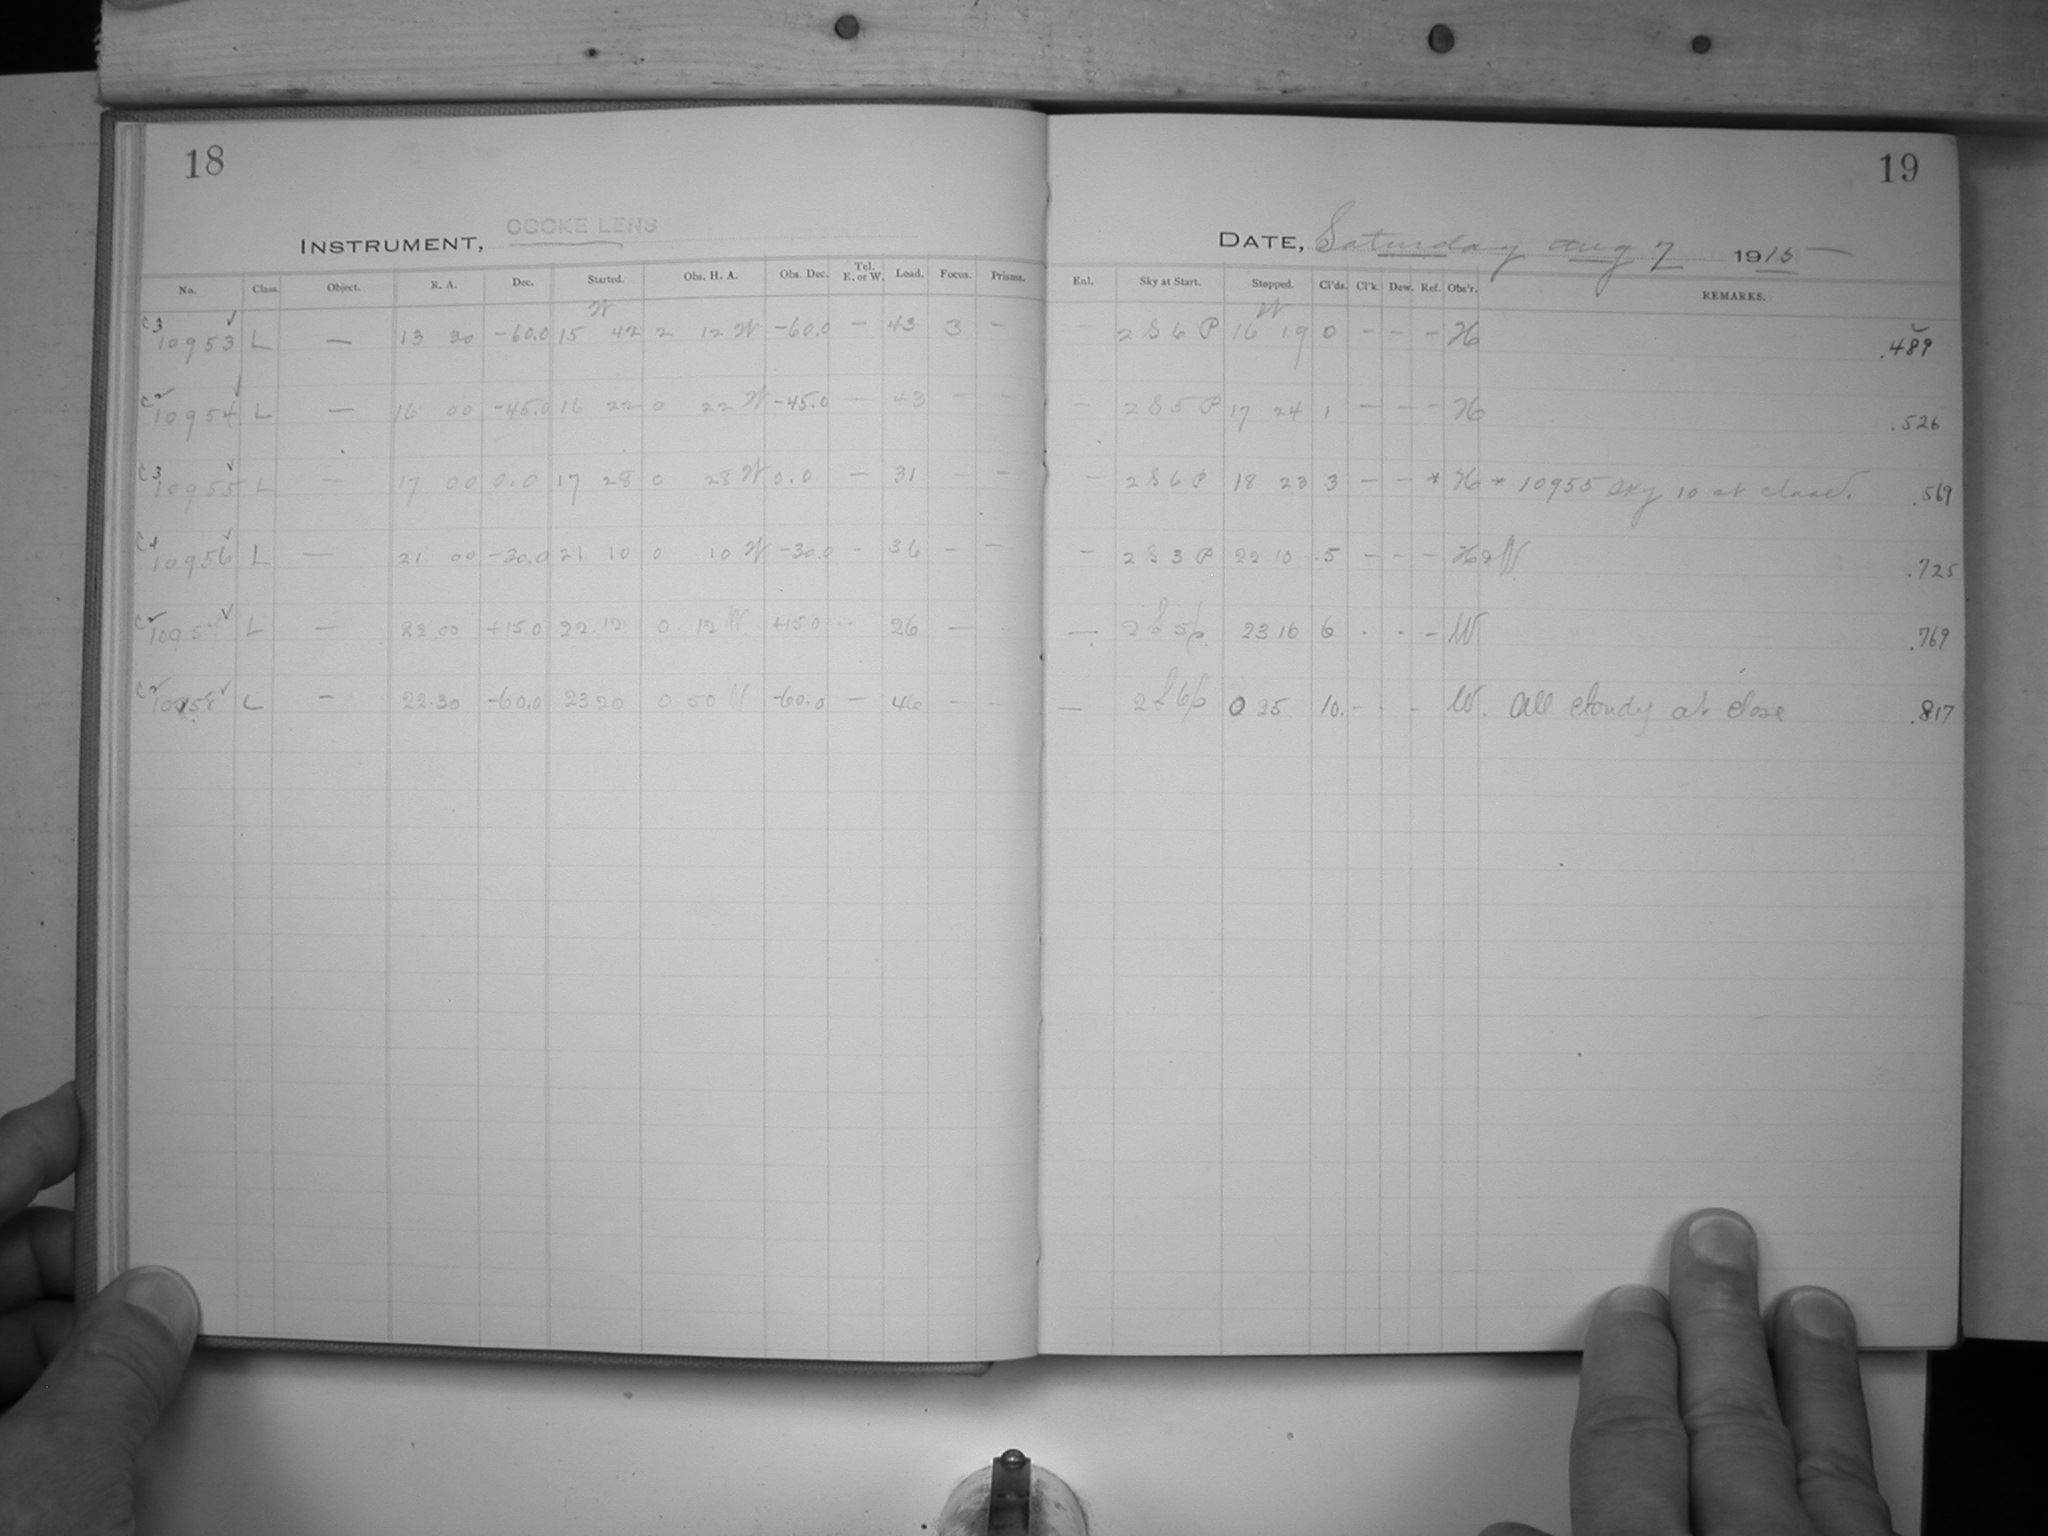 18
INSTRUMENT, COOKE LENS
No. Class. Object. R. A. Dec. Started. Obs. H. A. Obs. Dec. Tel. E. or W. Load. Focus. Prisms.
W
C3 10953 L — 13 30 -60.0 15 42 2 12 W -60.0 — 43 3 —
10954 L — 16 00 -45.0 16 22 0 22 W -45.0 — 43 — —
C3 10955 L — 17 00 0.0 17 28 0 28 W 0.0 — 31 — —
C4 10956 L — 21 00 -30.0 21 10 0 10 W -30.0 - 36 — —
L — 22.00 +15.0 22.12 0 12 W +15.0 - 26 — -
10958 L — 22.30 -60.0 23 20 0 50 W -60.0 — 46 - -
19
DATE, Saturday Aug 7 1915
Enl. Sky at Start. Stopped. Cl'ds. Cl'k. Dew. Ref. Obs'r. REMARKS.
W
2 S 6 P 16 19 0 — — — H .489
— 2 S 5 P 17 24 1 — — — H .526
— 2 S 6 P 18 23 3 — — * H * 10955 sky 10 at close. .569
— 2 S 3 P 22 10 .5 — — — H & W .725
— 2 S 5 p 23 16 6 - - — W .769
— 2 S 6 p 0 25 10. - - - W. All cloudy at close .817